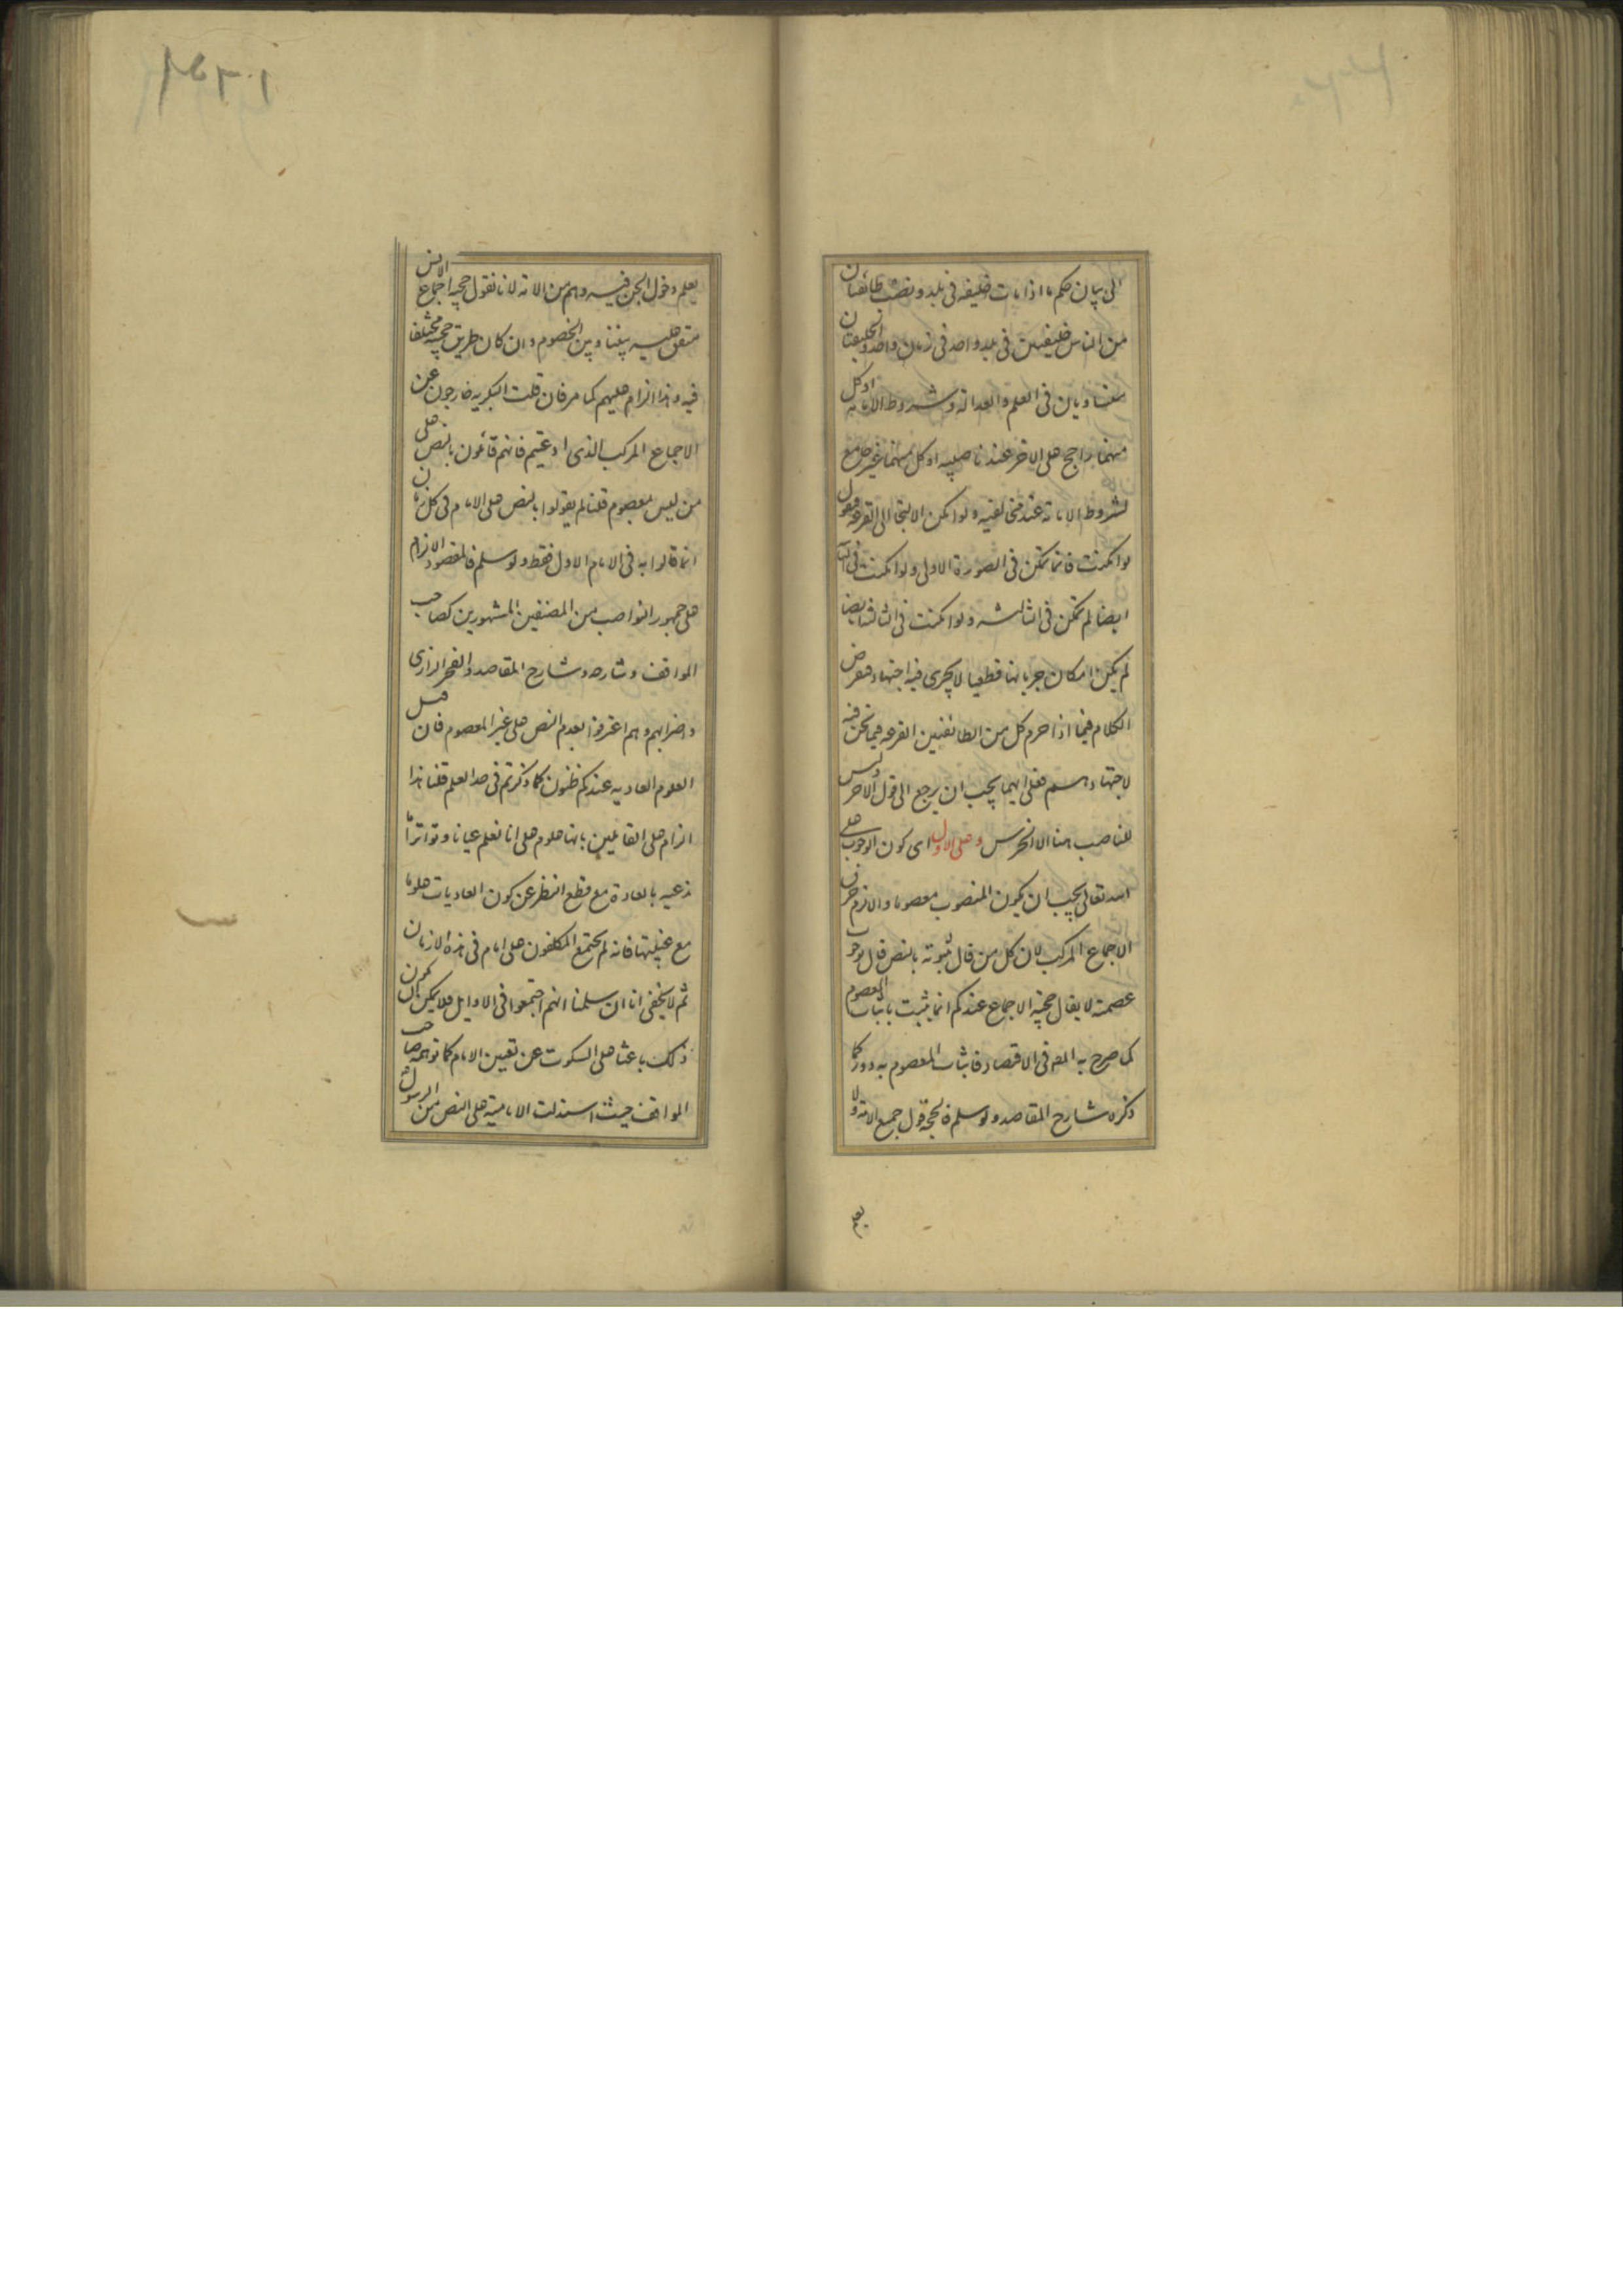 الى بيان حكم ما اذا مات خليفة فى بلد و نصب طائفتان
من الناس خليفتين فى بلد واحد فى زمان واحد و الخليفتان
متساويان فى العلم و العدالة و شروط الامامة او كل
منهما راجح على الاخر عند ناصبيه او كل منهما غير جامع
لشروط الامامة عند مخالفيه و لو امكن الالتجا الى القرعه فنقول
لو امكنت فانما تمكن فى الصورة الاولى و لو امكنت فى
ايضا لم تمكن فى الثالثه و لو امكنت فى الثالثه ايضا
لم يكن امكان جريانها قطعيا لا يجرى فيه اجتهاد فنفرض
الكلام فيما اذا حرم كل من الطائفتين القرعه فيما نحن فيه
لاجتهادهم فعلى ايهما يجب ان يرجع الى قول الاخر وليس
للناصب هنا الا الخرس و على الاول اى كون الوجوب على
الله تعالى يجب ان يكون المنصوب معصوما و الا لزم خرق
الاجماع المركب لان كل من قال بثبوته بالنص قال بوجوب
عصمته لا يقال حجية الاجماع عندكم انما يثبت باثبات المعصوم
كما صرح به المصـ فى الاقتصاد فاثبات المعصوم به دور كما
ذكره شارح المقاصد و لو سلم فالحجة قول جميع الامة و لا
يعلم
يعلم دخول الجن فيه و هم من الامة لانا نقول حجية اجماع الانس
متفق عليه بيننا و بين الخصوم و ان كان طريق حجيته مختلفا
فيه و هذا الزام عليهم كما مر فان قلت البكرية خارجون عن
الاجماع المركب الذى ادعيتم فانهم قائلون بالنص على
من ليس بمعصوم قلنا لم يقولوا بالنص على الامام فى كل زمان
انما قالوا به فى الامام الاول فقط و لو سلم فالمقصود الالزام
على جمهور النواصب من المصنفين المشهورين كصاحب
المواقف و شارحه و شارح المقاصد و الفخر الرازى
و اضرابهم و هم اعترفوا بعدم النص على غير المعصوم فان قيل
العلوم العادية عندكم ظنون كما ذكرتم فى حد العلم قلنا هذا
الزام على القائلين بانها علوم على انا نعلم عيانا و تواترا ما
ندعيه بالعادة مع قطع النظر عن كون العاديات علوما
مع فانه لم يجتمع المكلفون على امام فى هذه الازمان
ثم لا يخفى انا ان سلمنا انهم اجتمعوا فى الاوايل فلا يمكن ان يكون
ذلك باعثا على السكوت عن تعيين الامام كما توهمه صاحب
المواقف حيث استدلت الامامية على النص من الرسول